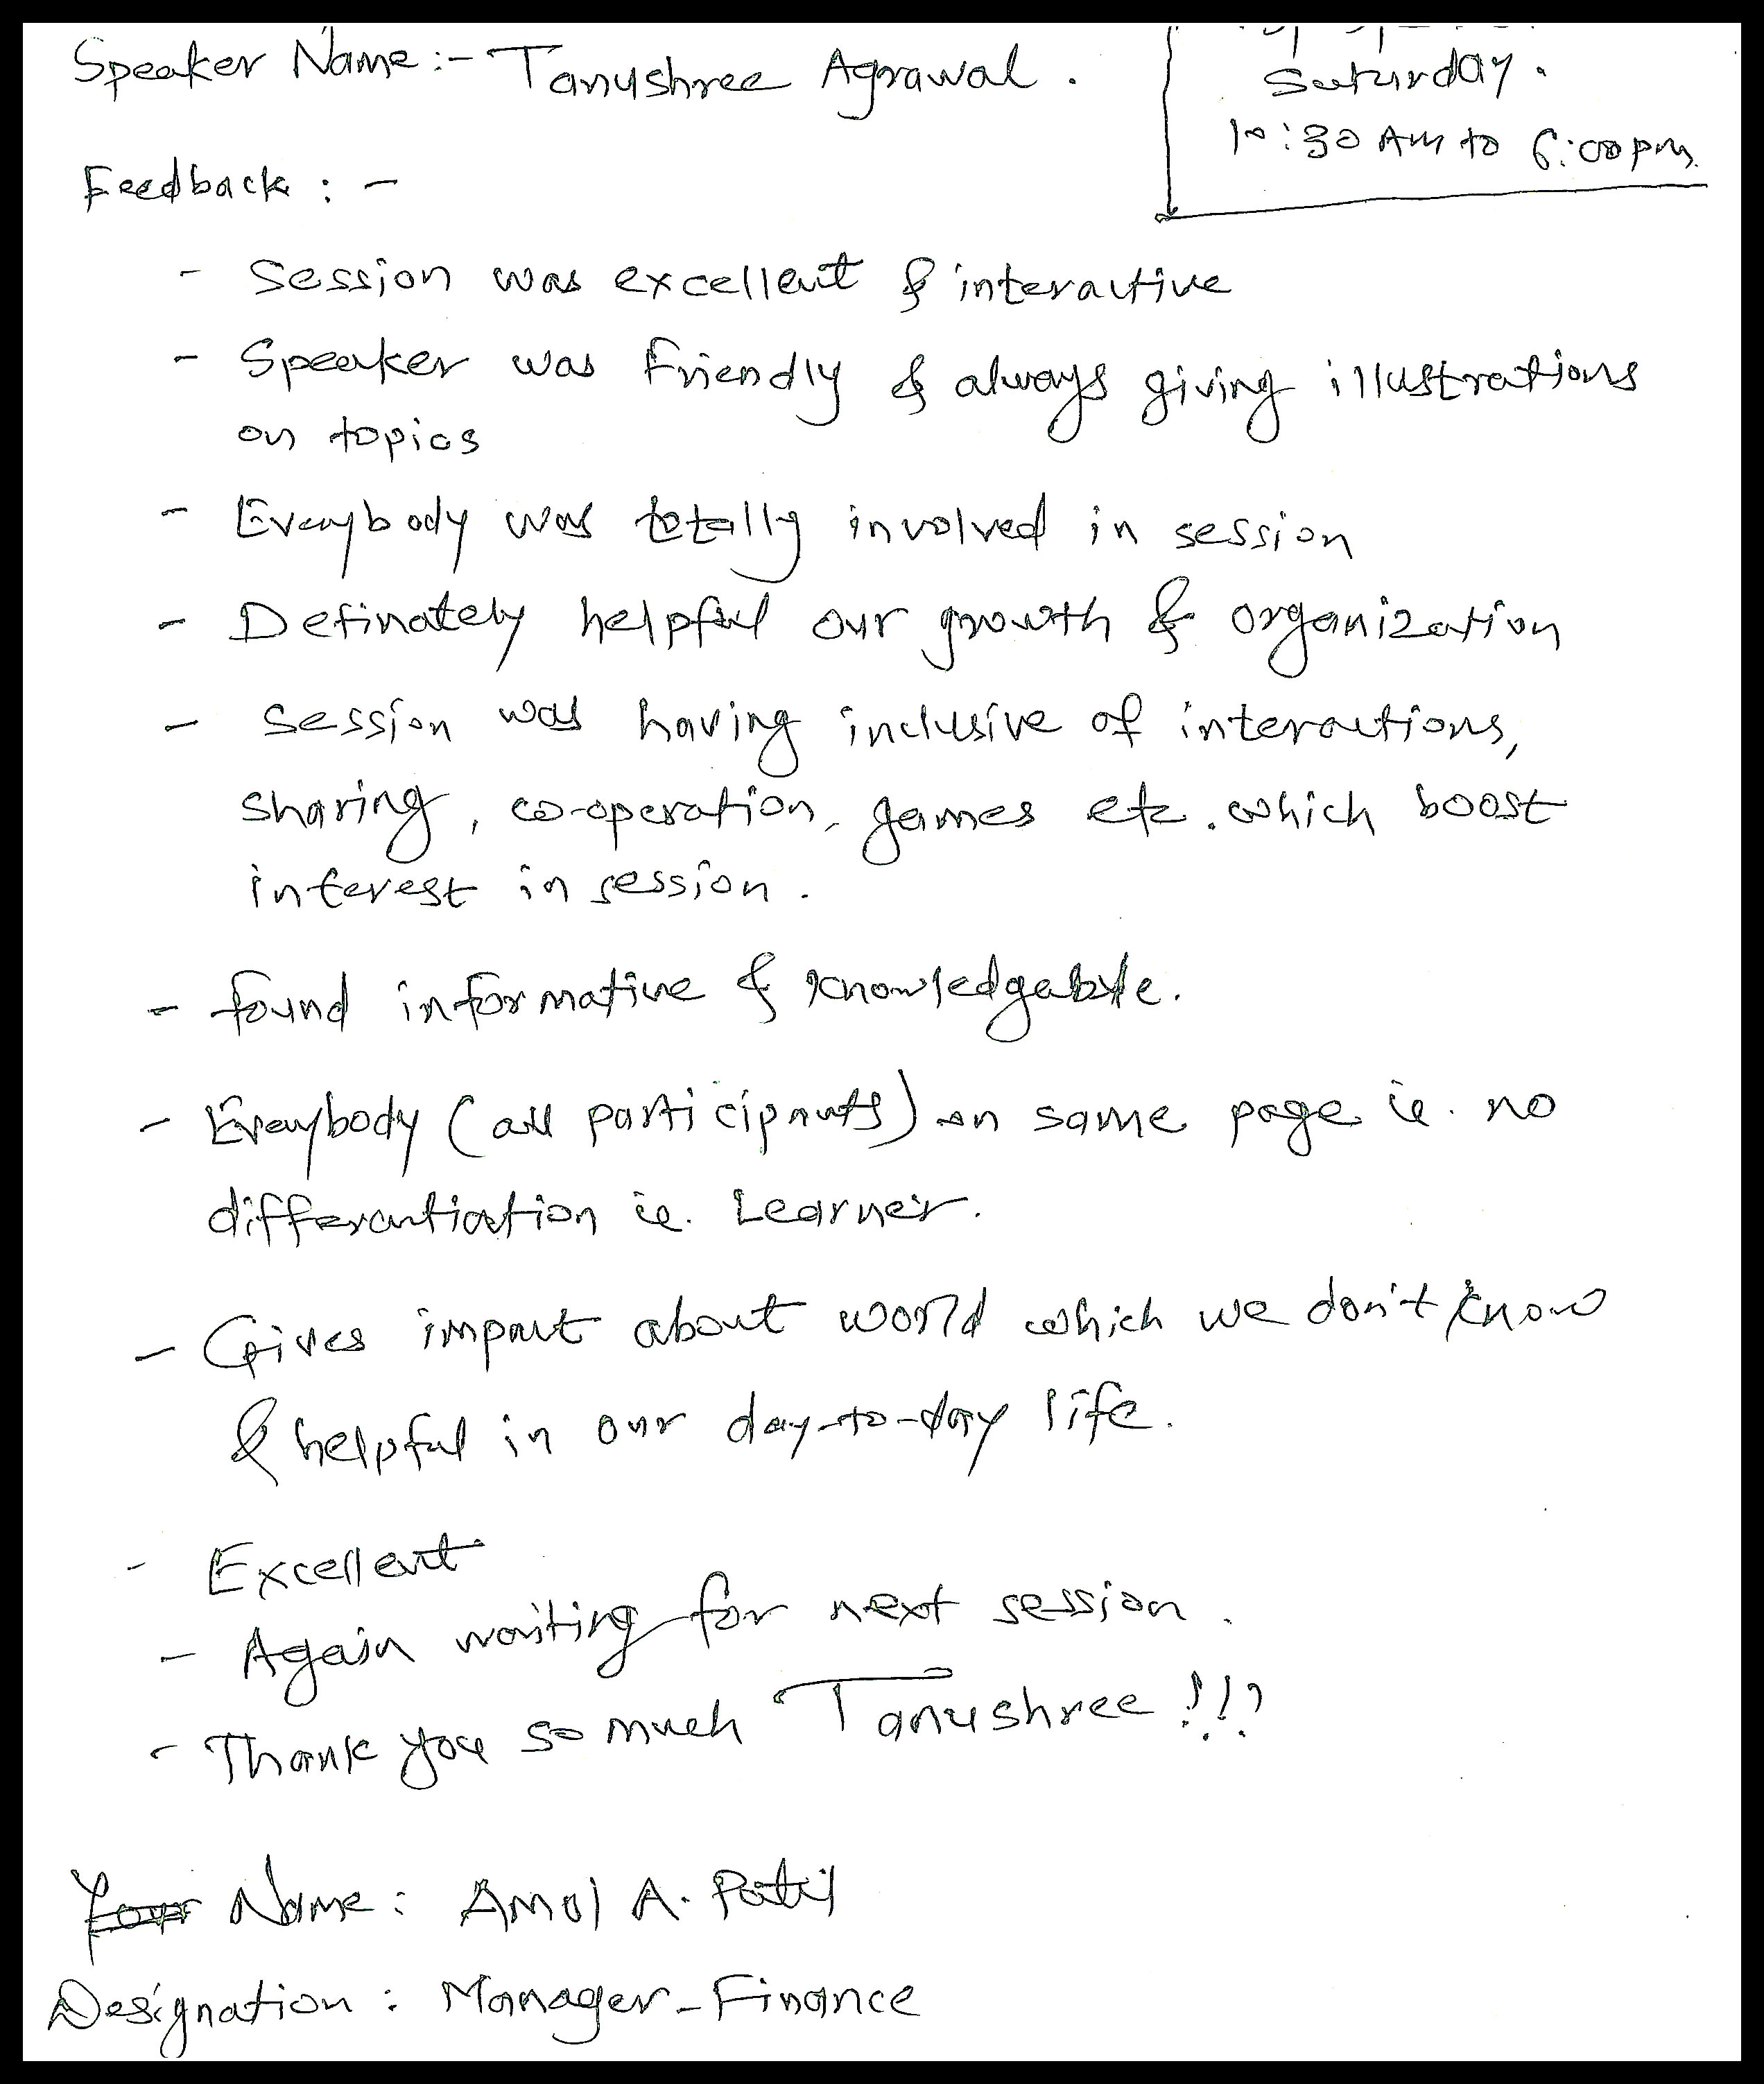 Speaker Name :- Tanushree Agrawal .
Saturday .
10:30 AM to 6:00 pm.
Feedback : -
- Session was excellent & interactive
- Speaker was friendly & always giving illustrations
on topics
- Everybody was totally involved in session
- Definately helpful our growth & organization
- Session was having inclusive of interactions,
sharing, co-operation, games etc. which boost
interest in session .
- found informative & knowledgable.
- Everybody (all participants) on same page ie. no
differentiation ie. Learner.
- Gives impact about world which we don't know
& helpful in our day-to-day life.
- Excellent
- Again waiting for next session .
- Thank you so much Tanushree !!!
Name : Amol A. Patil
Designation : Manager - Finance